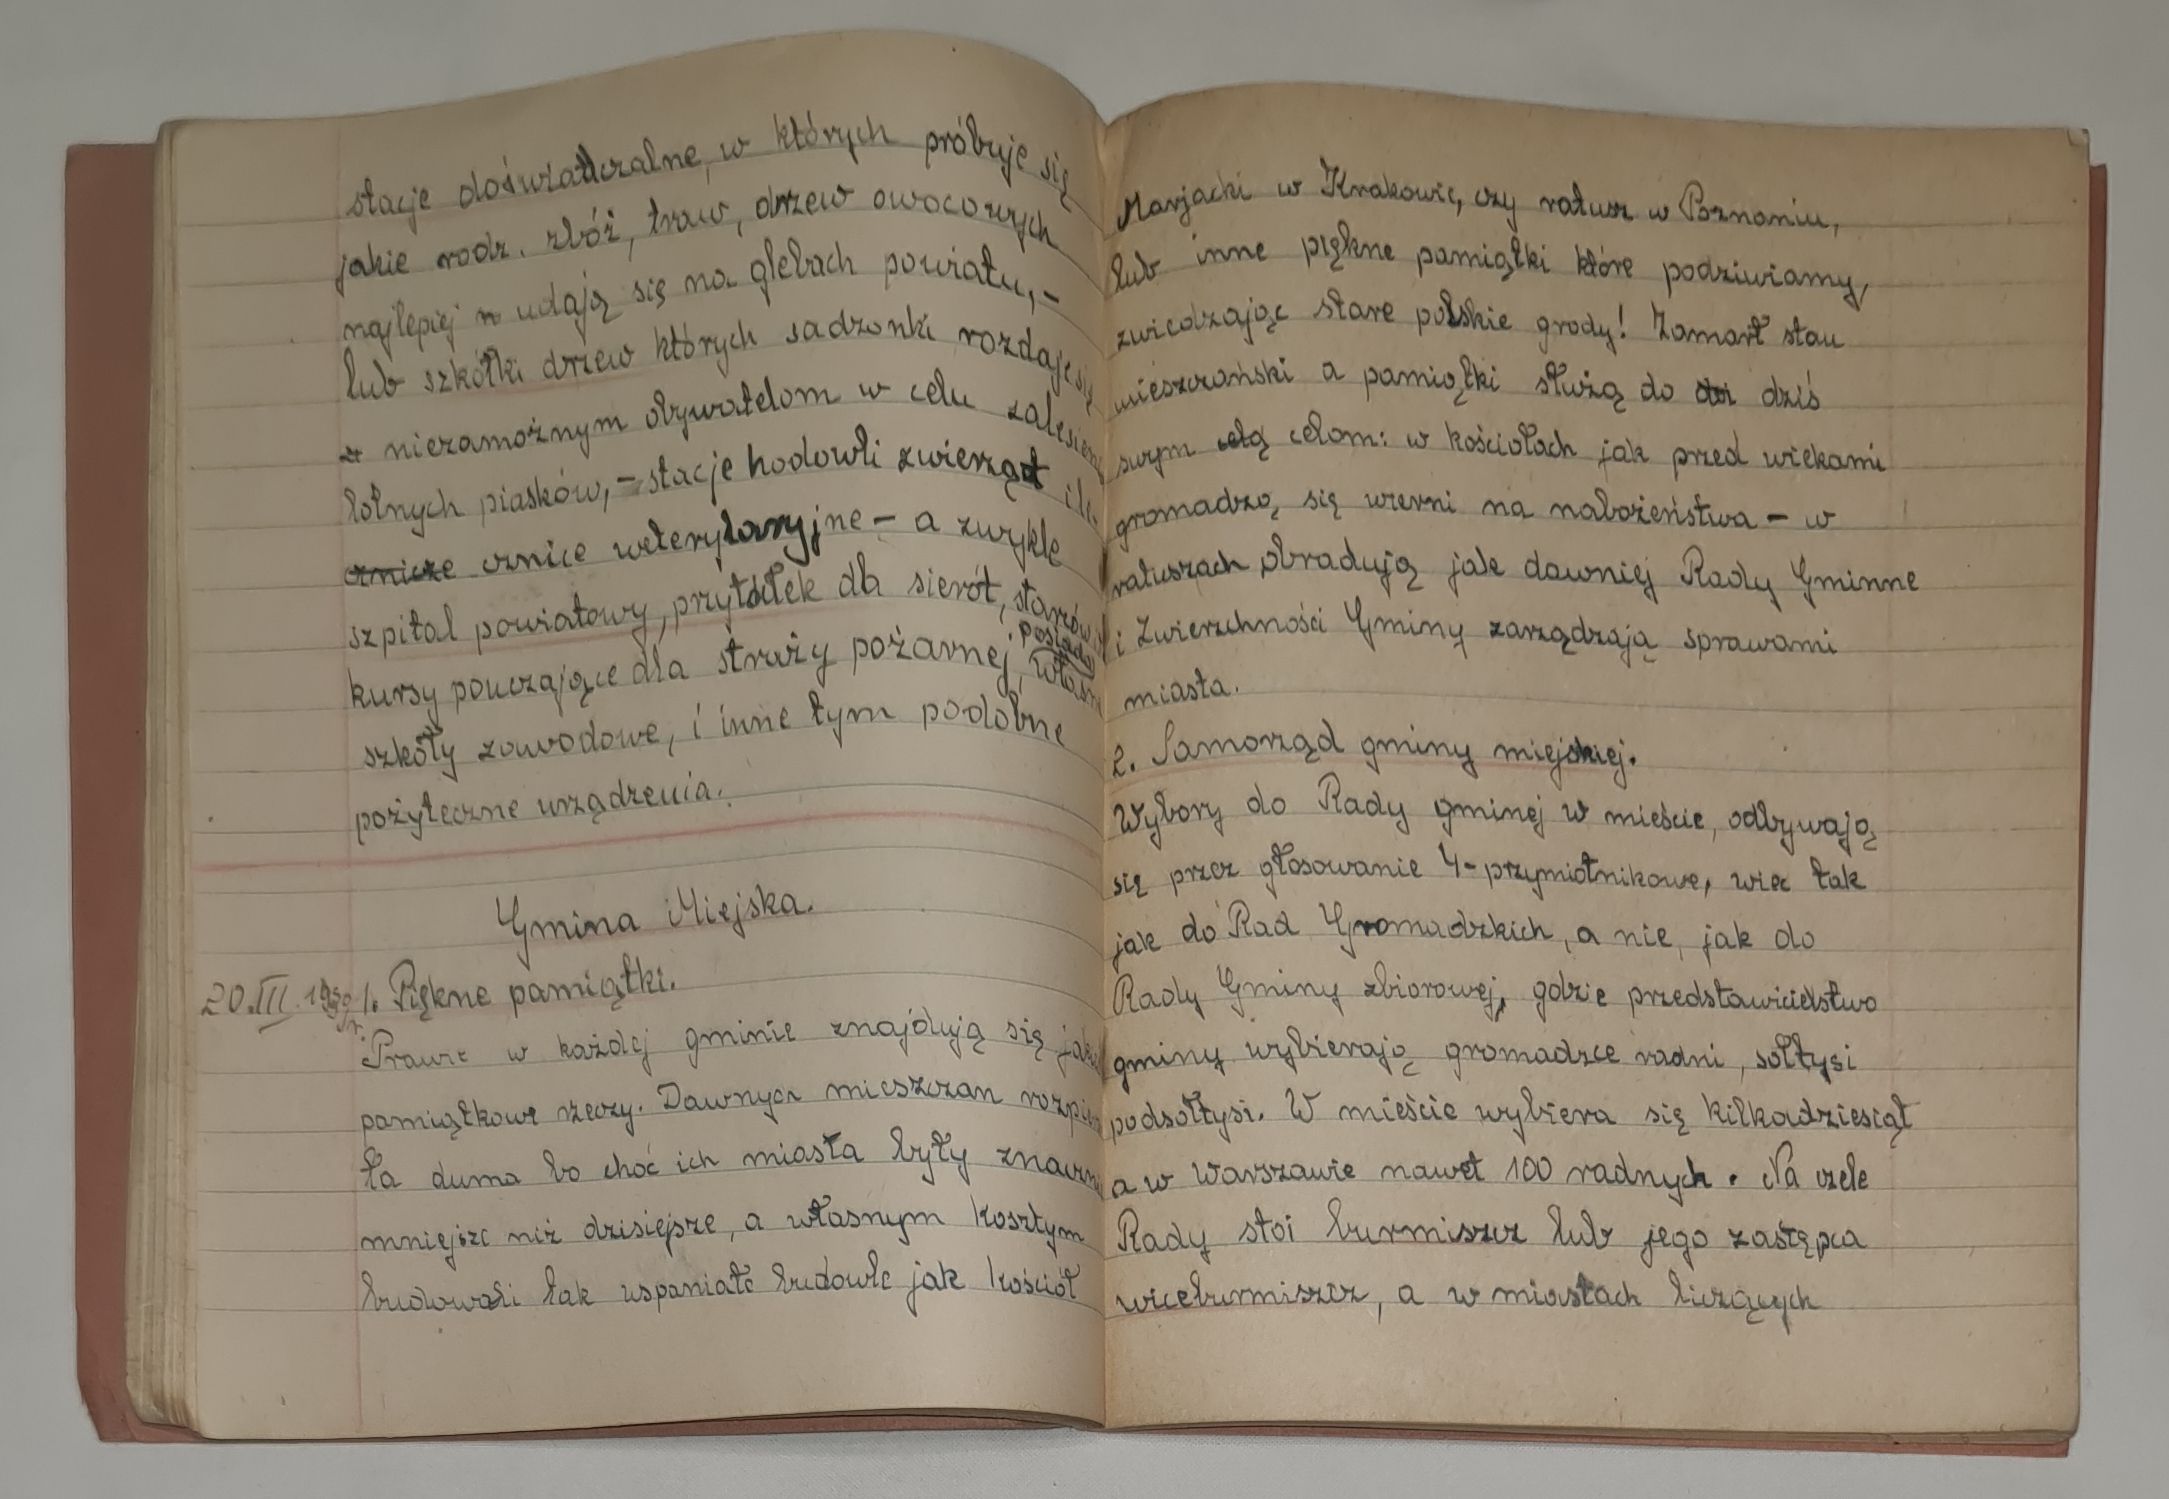 stacje doświadczalne, w których próbuje się
jakie rodz. zbóż, traw, drzew owocowych
najlepiej udają się na glebach powiatu, -
lub szkółki drzew których sadzonki rozdaje się
niezamożnym obywatelom w celu zalesieni
lotnych piasków, - stacje hodowli zwierząt i le-
cznicze cznice weterylaryjne - a zwykle
szpital powiatowy, przytółek dla sierót, starców,
kursy pouczające dla straży pożarnej, posiada własn
szkoły zawodowe, i inne tym podobne
pożyteczne urządzenia.
Gmina Miejska.
20.III.1939 r. 1. Piękne pamiątki.
Prawie w każdej gminie znajdują się jak
pamiątkowe rzeczy. Dawnych mieszczan rozpie
ła duma bo choć ich miasta były znaczn
mniejsze niż dzisiejsze, a własnym kosztym
budowali tak wspaniałe budowle jak kościół
Marjacki w Krakowie, czy ratusz w Poznaniu,
lub inne piękne pamiątki które podziwiamy,
zwiedzając stare polskie grody! Zamarł stau
mieszczański a pamiątki służą do dziś
swym celą celom: w kościołach jak przed wiekami
gromadzą się wierni na nabożeństwa - w
ratuszach obradują jak dawniej Rady Gminne
i Zwierzchności Gminy zarządzają sprawami
miasta.
2. Samorząd gminy miejskiej.
Wybory do Rady gminej w mieście, odbywają
się przez głosowanie 4-przymiotnikowe, wiec tak
jak do Rad Gromadzkich, a nie, jak do
Rady Gminy zbiorowej, gdzie przedstawicielstwo
gminy wybierają gromadzce radni, sołtysi
podsołtysi. W mieście wybiera się kilkadziesiąt
a w Warszawie nawet 100 radnych. Na czele
Rady stoi burmiszcz lub jego zastępca
wiceburmiszcz, a w miastach liczących